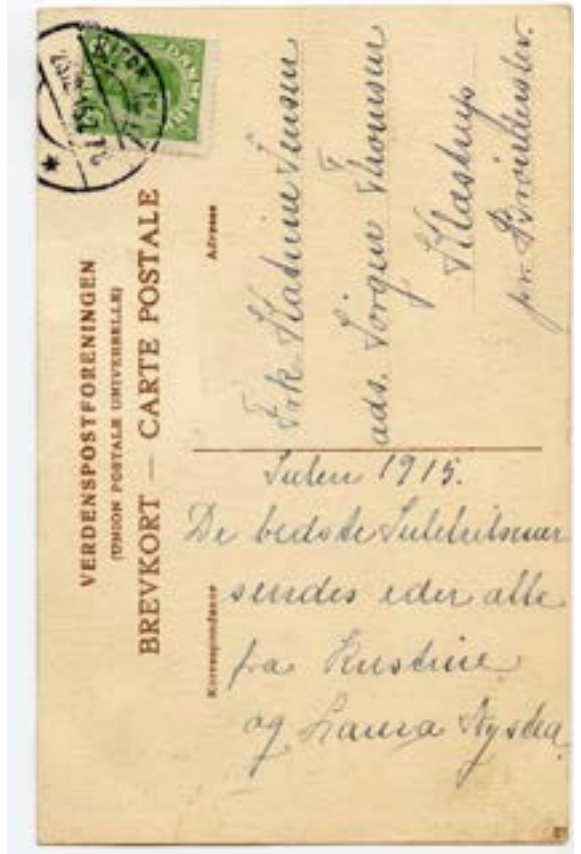 VERDENSPOSTFORENINGEN
(UNION POSTALE UNIVERSELLE)
BREVKORT — CARTE POSTALE
Adresse
Korrespondance
DANMARK
Frk. Katrine Jensen
ads. Jørgen Thomsen
Klastrup
pr. Brønderslev.
Julen 1915.
De bedste Julehilsener
sendes eder alle
fra Kristine
og Laura Nysted